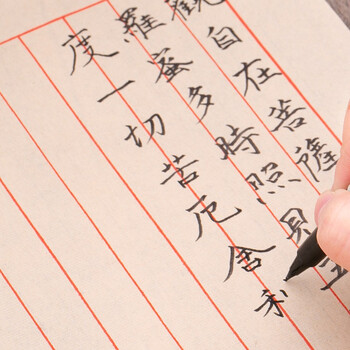 觀自在菩薩
羅蜜多時照見
度一切苦厄舍利